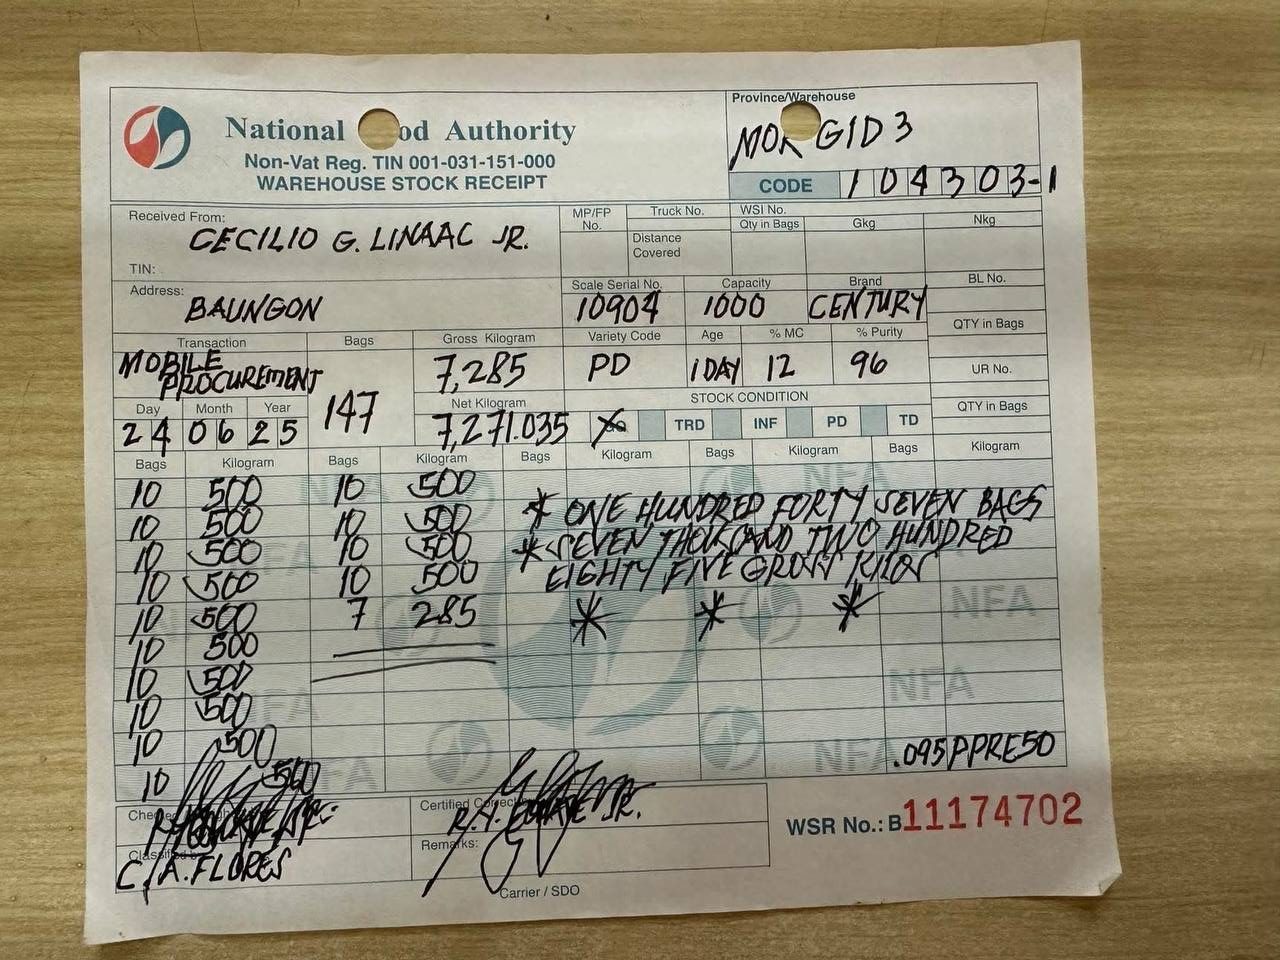 National Food Authority
Non-Vat Reg. TIN 001-031-151-000
WAREHOUSE STOCK RECEIPT
Province/Warehouse
MOR GID 3
CODE 104303-1
Received From:
CECILIO G. LINAAC JR.
TIN:
MP/FP No.
Truck No.
Distance Covered
WSI No.
Qty in Bags
Gkg
Nkg
Address:
BAUNGON
Scale Serial No.
10904
Capacity
1000
Brand
CENTURY
BL No.
QTY in Bags
UR No.
QTY in Bags
Transaction
MOBILE
PROCUREMENT
Bags
147
Gross Kilogram
7,285
Net Kilogram
7,271.035
Variety Code
PD
Age
1 DAY
% MC
12
% Purity
96
Day Month Year
24 06 25
STOCK CONDITION
TRD INF PD TD
Bags Kilogram Bags Kilogram Bags Kilogram Bags Kilogram Bags Kilogram
10 500 10 500
10 500 10 500
10 500 10 500
10 500 10 500
10 500 7 285
10 500
10 500
10 500
10 500
10 500
* ONE HUNDRED FORTY SEVEN BAGS
* SEVEN THOUSAND TWO HUNDRED
EIGHTY FIVE GROSS KILOS
* * *
NFA
NFA
NFA
NFA
NFA
NFA
.095PPRE50
WSR No.: B11174702
Certified Correct
Remarks:
C.A. FLORES
Carrier / SDO